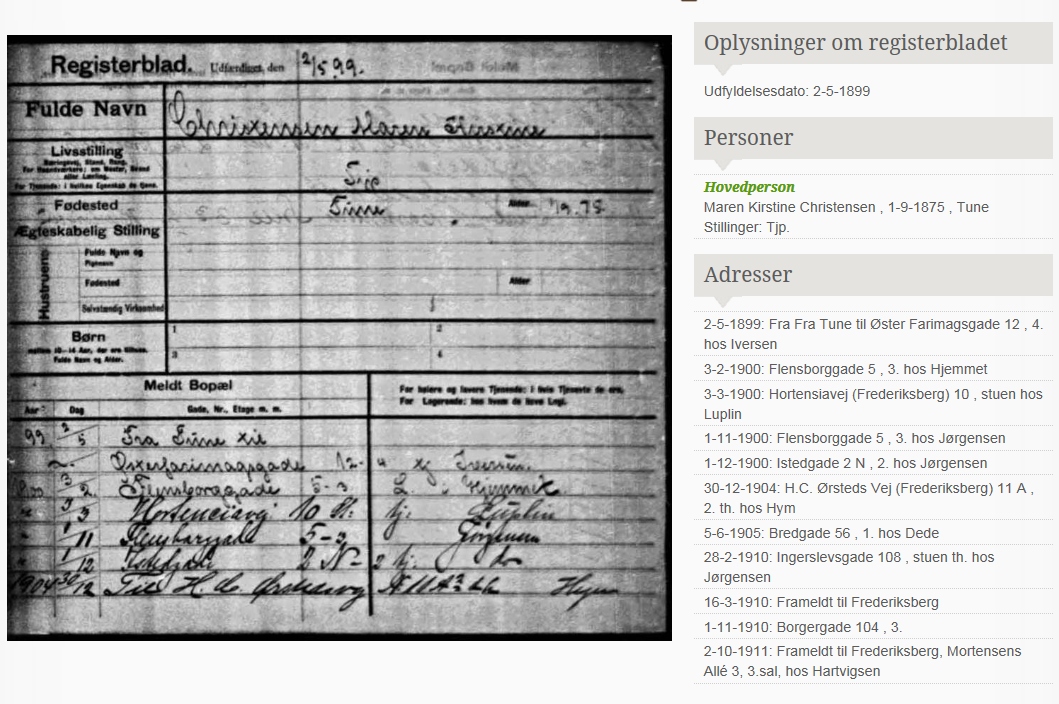 Registerblad. Udfærdiget, den 2/5 99.
Fulde Navn Christensen Maren Kirstine
Livsstilling
Tjp
Fødested Tune Alder 1/9. 75
Ægteskabelig Stilling
Hustruens
Fulde Navn og
Fødested Alder
Selvstændig Virksomhed
Børn 1 2
mellem 10-14 Aar, der ere tilhuse. 3 4
Fulde Navn og Alder.
Meldt Bopæl
For højere og lavere Tjenende: i hvis Tjeneste de ere.
For Logerende: hos hvem de have Logi.
Aar Dag Gade, Nr., Etage m. m.
99 2/5 Fra Tune til
Østerfarimagsgade 12 - 4 Iversen.
3/2 Flensborggade 5-3 Hjemmet
3/3 Hortenciavej 10 St. tj. Luplin
1/11 Flensborggade 5-3 Jørgensen
1/12 Istedgade 2 N- 2 tj. do
1904 30/12 Til H. C. Ørstedsvej Hym
Oplysninger om registerbladet
Udfyldelsesdato: 2-5-1899
Personer
Hovedperson
Maren Kirstine Christensen , 1-9-1875 , Tune
Stillinger: Tjp.
Adresser
2-5-1899: Fra Fra Tune til Øster Farimagsgade 12 , 4.
hos Iversen
3-2-1900: Flensborggade 5 , 3. hos Hjemmet
3-3-1900: Hortensiavej (Frederiksberg) 10 , stuen hos
Luplin
1-11-1900: Flensborggade 5 , 3. hos Jørgensen
1-12-1900: Istedgade 2 N , 2. hos Jørgensen
30-12-1904: H.C. Ørsteds Vej (Frederiksberg) 11 A ,
2. th. hos Hym
5-6-1905: Bredgade 56 , 1. hos Dede
28-2-1910: Ingerslevsgade 108 , stuen th. hos
Jørgensen
16-3-1910: Frameldt til Frederiksberg
1-11-1910: Borgergade 104 , 3.
2-10-1911: Frameldt til Frederiksberg, Mortensens
Allé 3, 3.sal, hos Hartvigsen